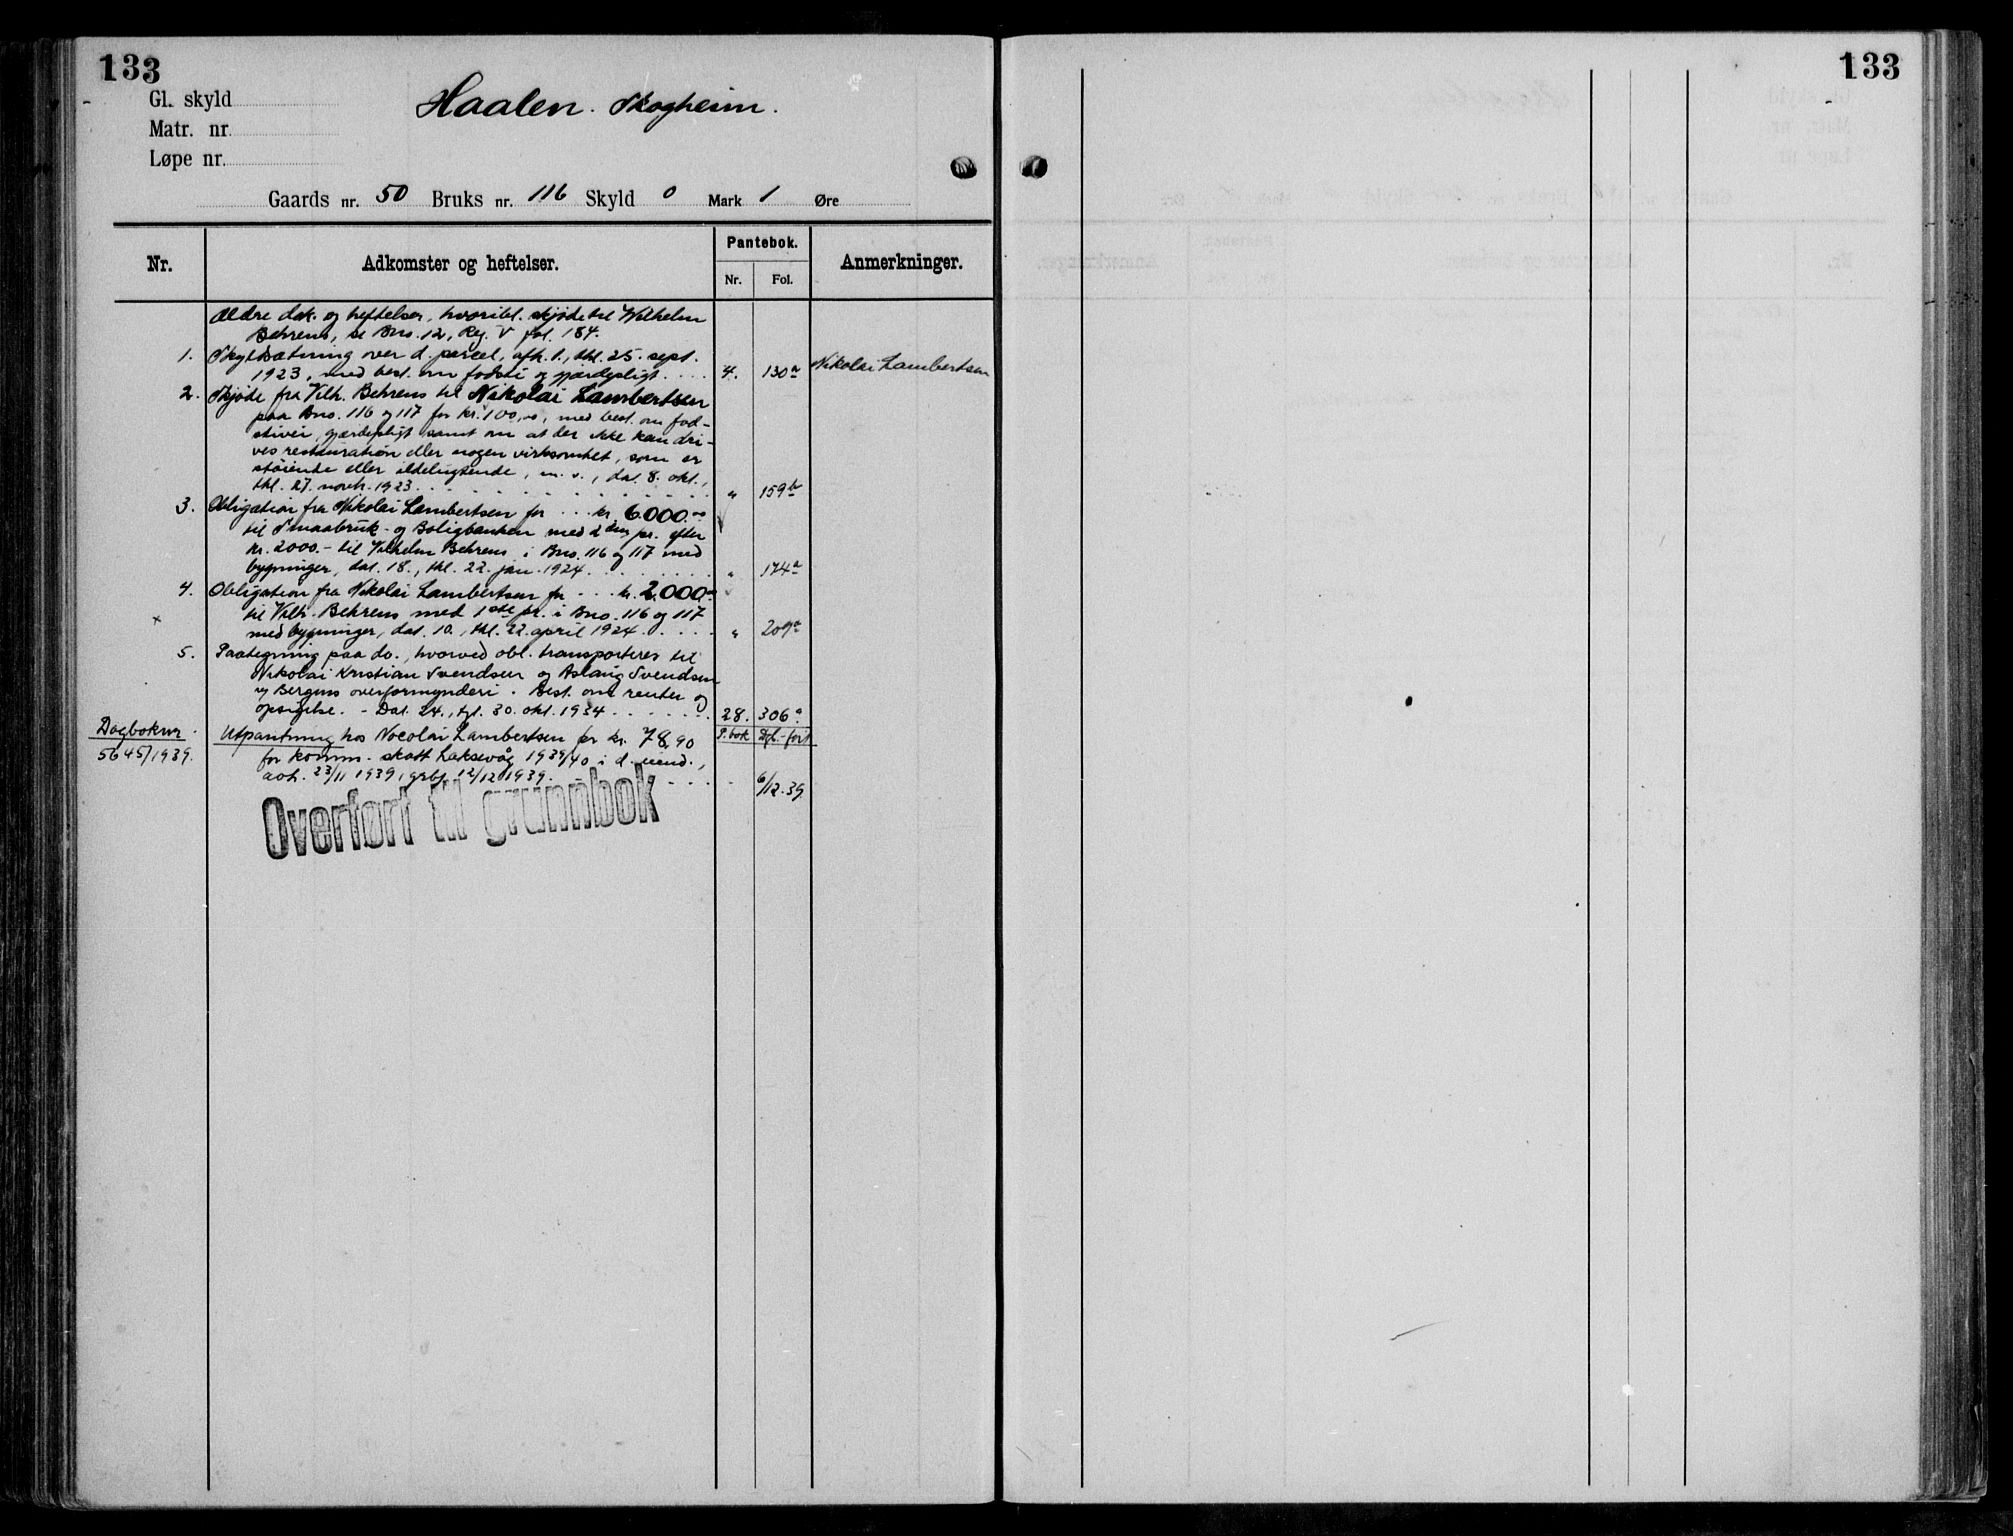 133
133
Gl. skyld
Matr. nr.
Løpe nr.
Haalen. Skogheim.
Gaards nr. 50 Bruks nr. 116 Skyld 0 Mark 1 Øre
Nr.
Adkomster og heftelser.
Pantebok.
Nr. Fol.
Anmerkninger.
Ældre dok. og heftelser, hvoribl. skjøde til Wilhelm
Behrens, se Bno. 12, Reg. V fol. 184.
1. Skyldsætning over d. parcel, afh. 1., thl. 25. sept.
1923, med best. om fodsti og gjærdepligt. . . . 4. 130a Nikolai Lambertsen
2. Skjøde fra Vilh. Behrens til Nikolai Lambertsen
paa Bno. 116 og 117 for kr. 100,00, med best. om fod-
stier, gjærdepligt samt om at der ikke kan dri-
ves restauration eller nogen virksomhet, som er
støiende eller ildelugtende, m. v., dat. 8. okt.,
thl. 27. novh. 1923. . . . " 159b
3. Obligation fra Nikolai Lambertsen for . . . kr. 6000.00
til Smaabruk- og Boligbanken med 2den pr. efter
kr. 2000.- til Vilhelm Behrens i Bno. 116 og 117 med
bygninger, dat. 18., thl. 22. jan. 1924. . . . " 174a
4. Obligation fra Nikolai Lambertsen for . . . kr. 2.000.00
til Vilh. Behrens med 1ste pr. i Bno. 116 og 117
med bygninger, dat. 10., thl. 22. april 1924. . . . " 209a
5. Paategning paa do., hvorved obl. transporteres til
Nikolai Kristian Svendsen og Aslaug Svendsen
v/ Bergens overformynderi. Best. om renter og
opsigelse. - Dat. 24., tgl. 30. okt. 1934 . . . 28. 306a
Dagboknr. Utpantning hos Nocolai Lambertsen for kr. 78,90 P.bok Dgb.-ført
5645/1939. for komm. skatt Laksevåg 1939/40 i d. eiend.,
avh. 23/11 1939, grbf. 12/12 1939. . . . 6/12.39
Overført til grunnbok